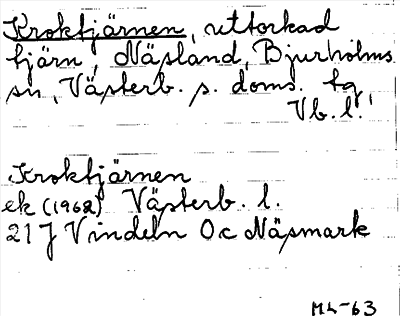 Kroktjärnen, uttorkad
tjärn, Näsland, Bjurholms
sn, Västerb. s. doms. tg,
Vb. l.
Kroktjärnen
ek (1962) Västerb. l.
21 J Vindeln 0c Näsmark
ML-63